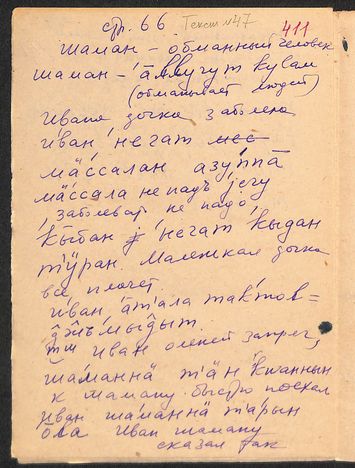 стр. 66 Текст №47 411
шаман – обманный человек
шаман – а̄ллуҷуж к̣уlаl
(обманывает людей)
Ивана дочка заболела
и́ван не́гат
ма̄ссалан азу́п̄п̄а̄
ма̄ссала не надъ jегу
заболевать не надо
к̣ы́бан не́гат к̣ы́дан
тӱ́ран. Маленькая дочка
всё плачет.
и́ван а́тала
Иван оленей запрег,
ша́ман̄на̄ та̄н к̣wан̄нын
к шаману быстро поехал
и́ван ша́ман̄на̄ та́рын
Иван шаману
сказал так